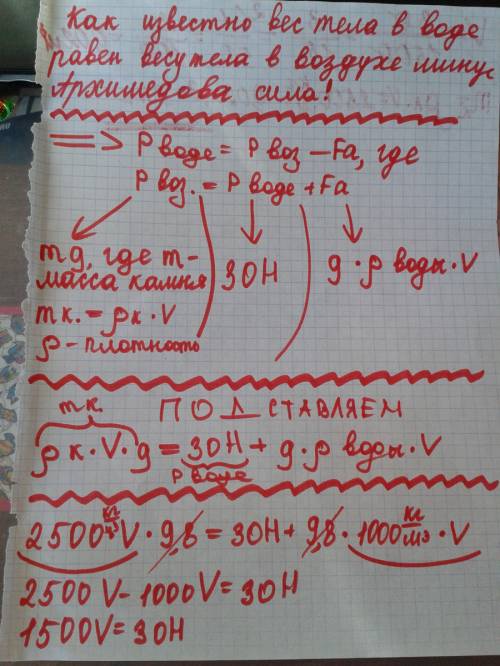 Как известно вес тела в воде
равен весу тела в воздухе минус
Архимедова сила!
=> P воде = P воз – Fa, где
P воз. = P воде + Fa
mg, где m- масса камня
mк. = ρк · V
ρ - плотность
30Н
g · ρ воды · V
mк.
ПОДСТАВЛЯЕМ
ρк · V · g = 30Н + g · ρ воды · V
P воде
2500 кг/м3 V · 9,8 = 30Н + 9,8 · 1000 кг/м3 · V
2500V - 1000V = 30Н
1500V = 30Н